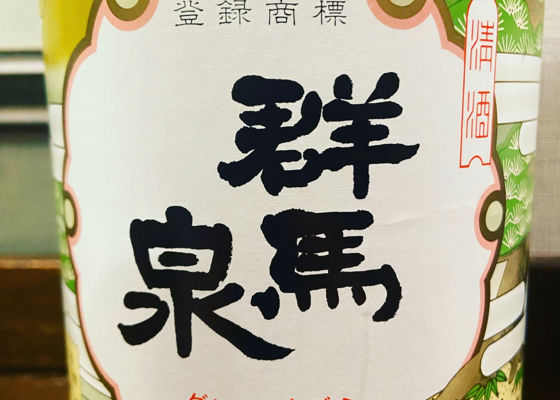 登録商標
清酒
群馬
泉